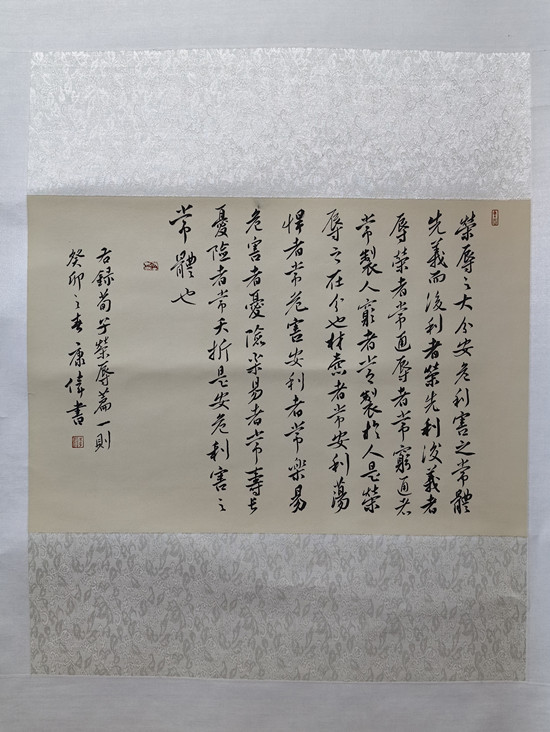 榮辱之大分安危利害之常體
先義而後利者榮先利後義者
辱榮者常通辱者常窮通者
常製人窮者常製於人是榮
辱之在分也材愨者常安利蕩
悍者常危害安利者常樂易
危害者憂險樂易者常壽長
憂險者常夭折是安危利害之
常體也
右録荀子榮辱篇一則
癸卯之春康偉書